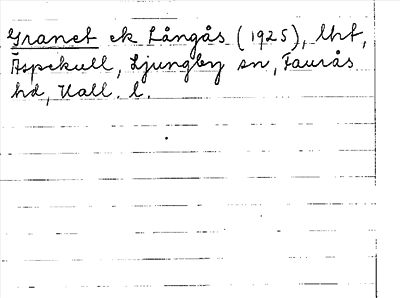 Granet ek Långås (1925), lht,
Äspekull, Ljungby sn, Faurås
hd, Hall. l.